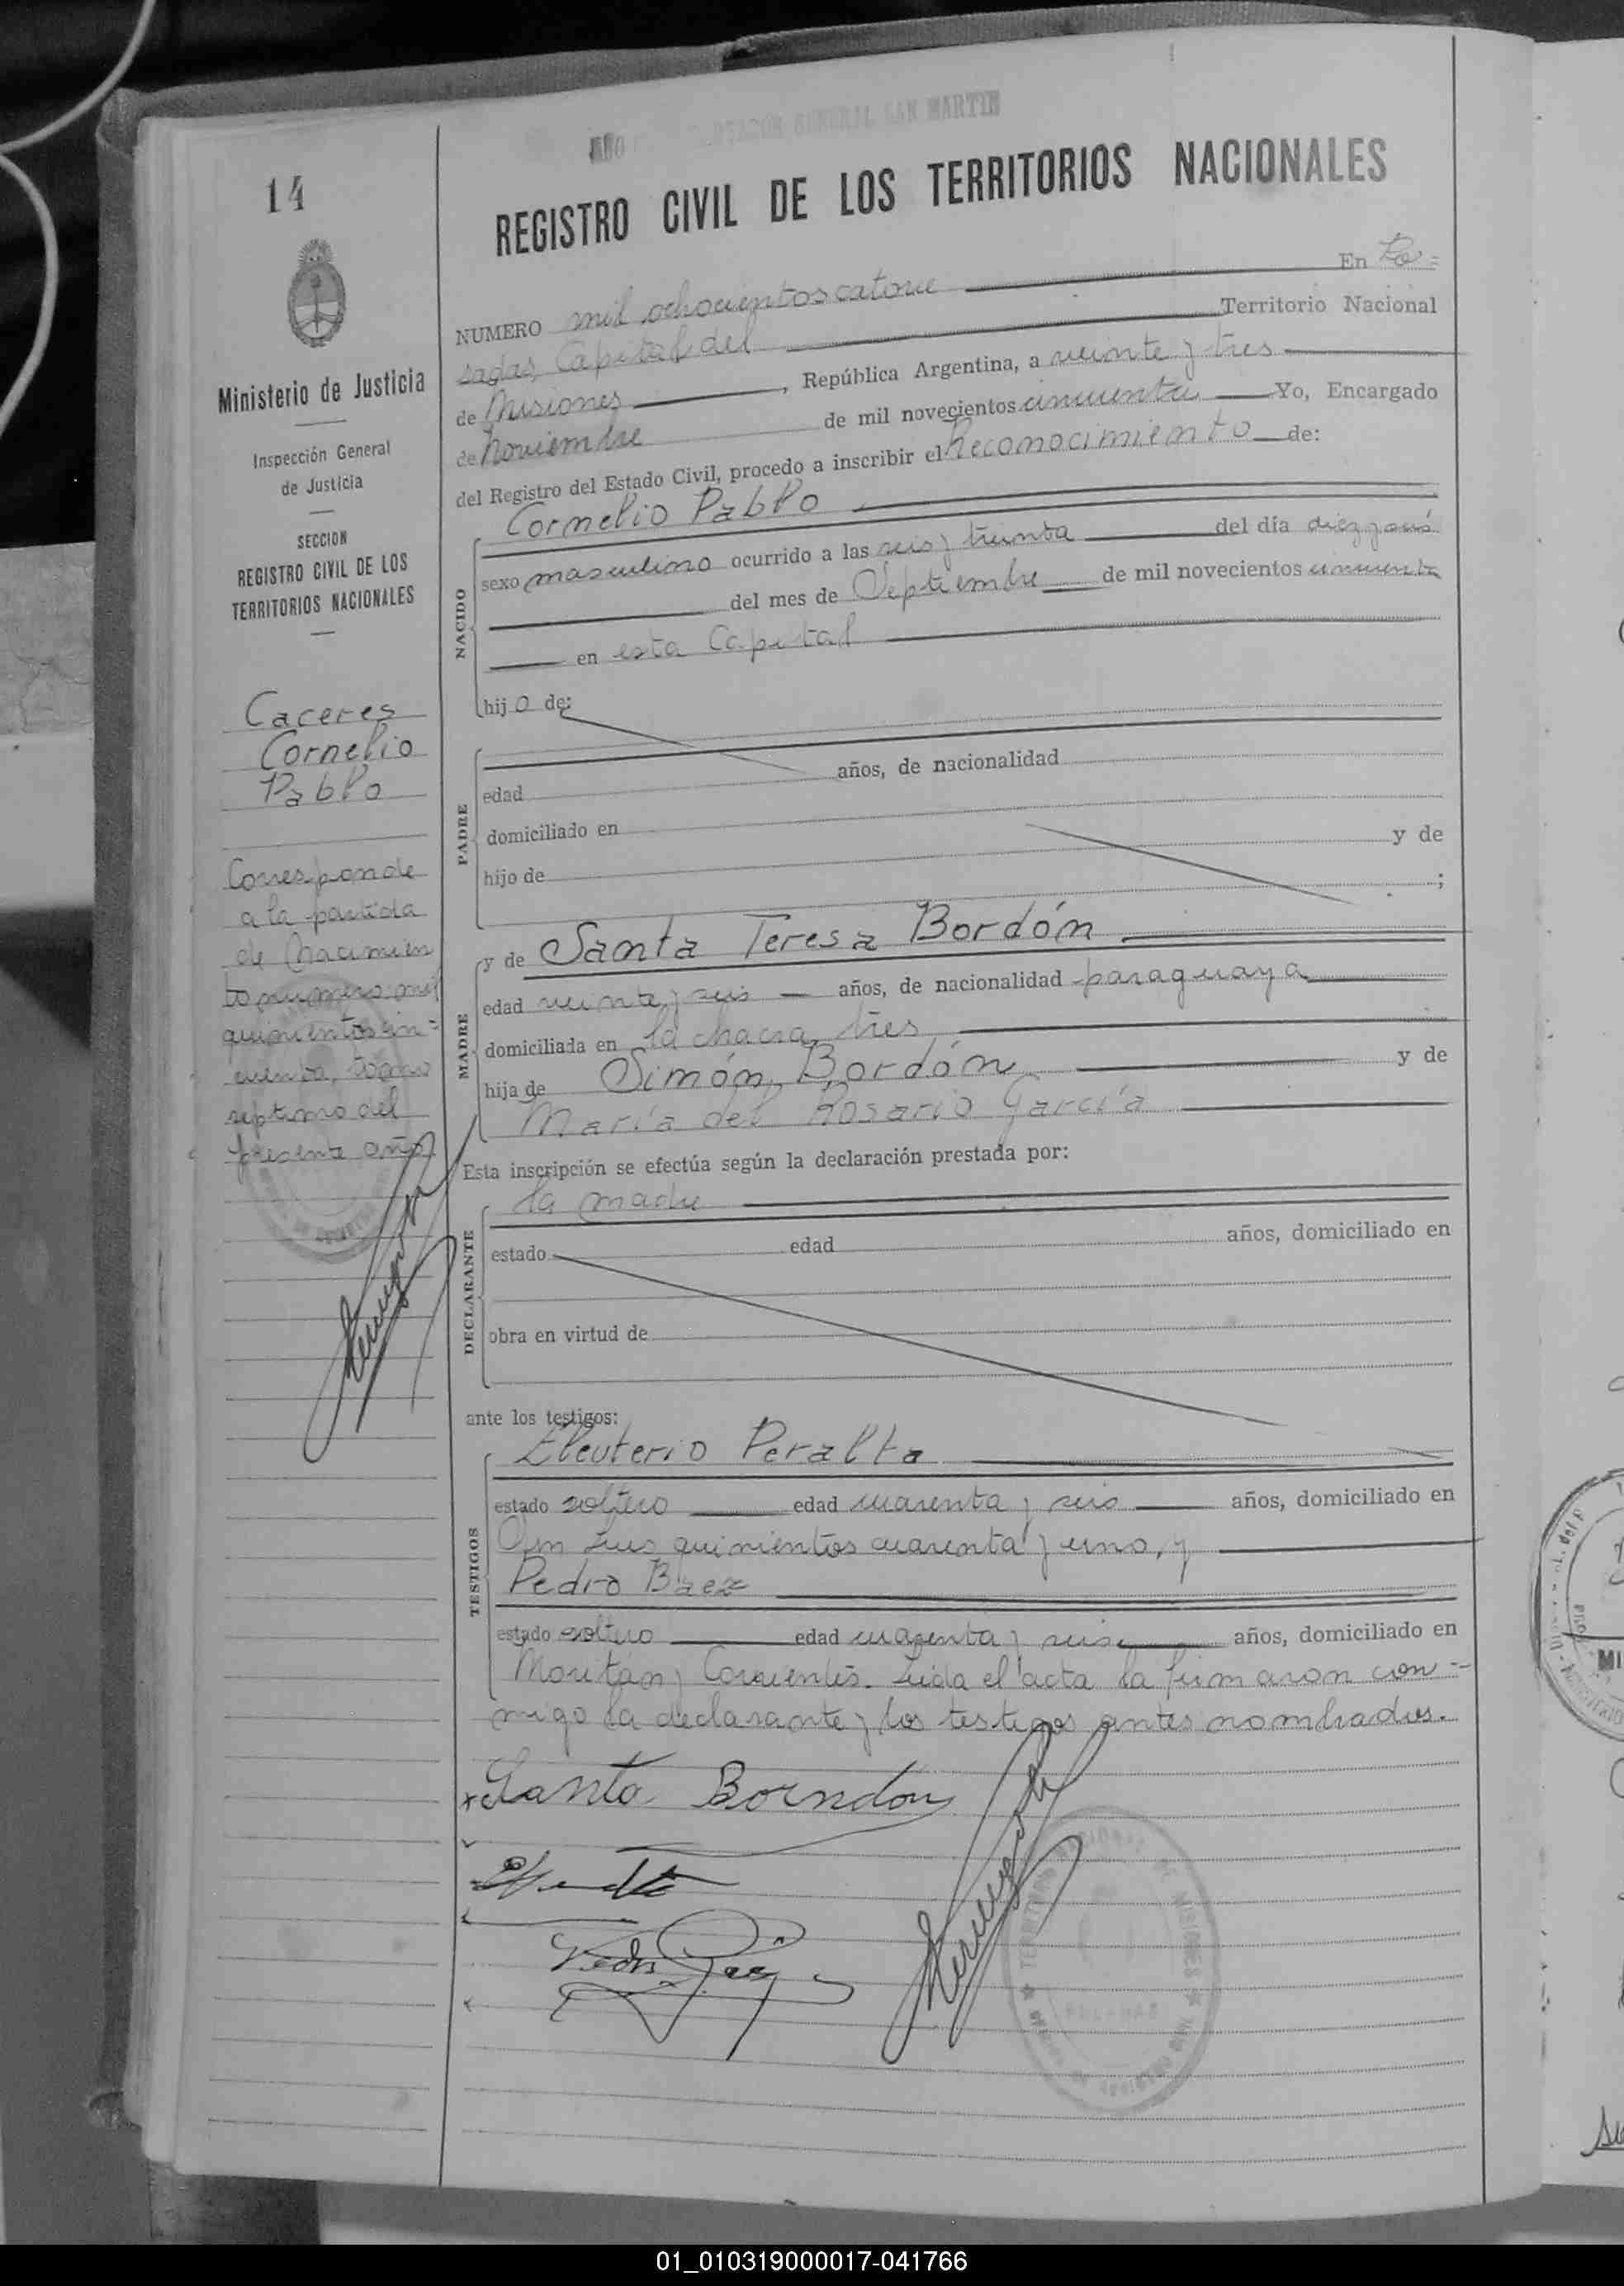 AÑO LIBERTADOR GENERAL SAN MARTIN
14
REGISTRO CIVIL DE LOS TERRITORIOS NACIONALES
Ministerio de Justicia
Inspección General
de Justicia
SECCION
REGISTRO CIVIL DE LOS
TERRITORIOS NACIONALES
Caceres
Cornelio
Pablo
Corresponde
a la partida
de Nacimien
to número mil
quinientos cin=
cuenta, tomo
septimo del
presente año
NUMERO mil ochocientos catorce En Po=
sadas, Capital del Territorio Nacional
de Misiones, República Argentina, a veinte y tres
de Noviembre de mil novecientos cincuenta Yo, Encargado
del Registro del Estado Civil, procedo a inscribir el Reconocimiento de:
NACIDO
Cornelio Pablo
sexo masculino ocurrido a las seis y treinta del día diez y seis
del mes de Septiembre de mil novecientos cincuenta
en esta Capital
hijo de:
PADRE
edad años, de nacionalidad
domiciliado en
hijo de y de
;
MADRE
y de Santa Teresa Bordón
edad veinte y seis años, de nacionalidad paraguaya
domiciliada en la chacra tres
hija de Simón Bordón y de
María del Rosario García
Esta inscripción se efectúa según la declaración prestada por:
DECLARANTE
la madre
estado edad años, domiciliado en
obra en virtud de
ante los testigos:
TESTIGOS
Eleuterio Peralta
estado soltero edad cuarenta y seis años, domiciliado en
San Luis quinientos cuarenta y uno, y
Pedro Baez
estado soltero edad cuarenta y seis años, domiciliado en
Moritán y Corrientes. Leida el acta la firmaron con=
migo la declarante y los testigos antes nombrados.
Santa Borndon
Pedro Baez
TERRITORIO NACIONAL DE MISIONES
01_010319000017-041766